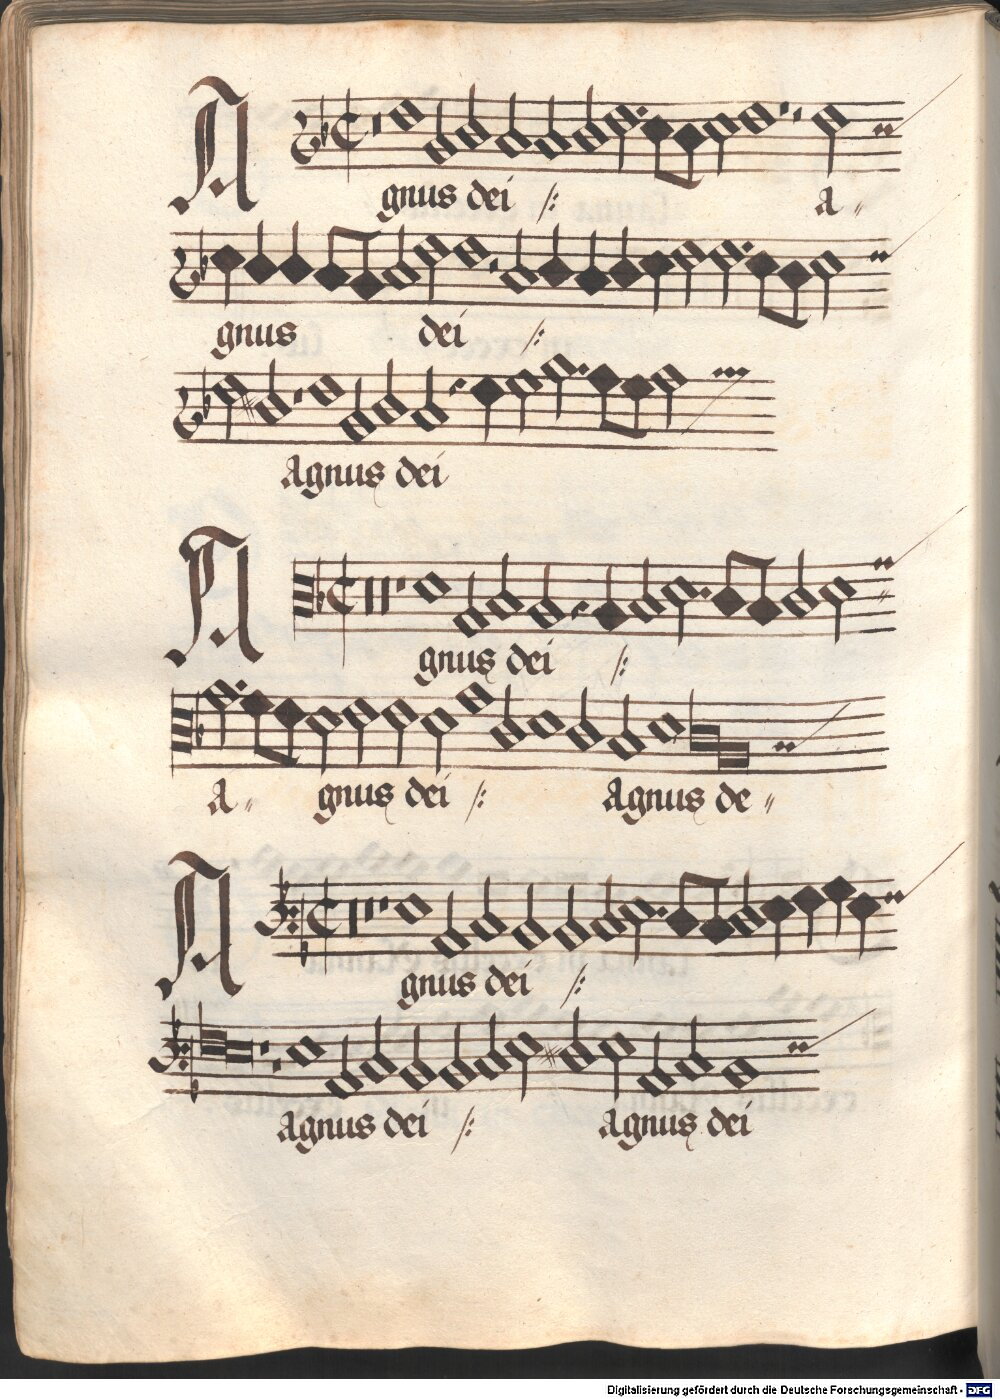 A gnus dei /: A〃
gnus dei /:
Agnus dei
A gnus dei /:
A〃 gnus dei /: Agnus de〃
A gnus dei /:
Agnus dei /: Agnus dei
Digitalisierung gefördert durch die Deutsche Forschungsgemeinschaft - DFG